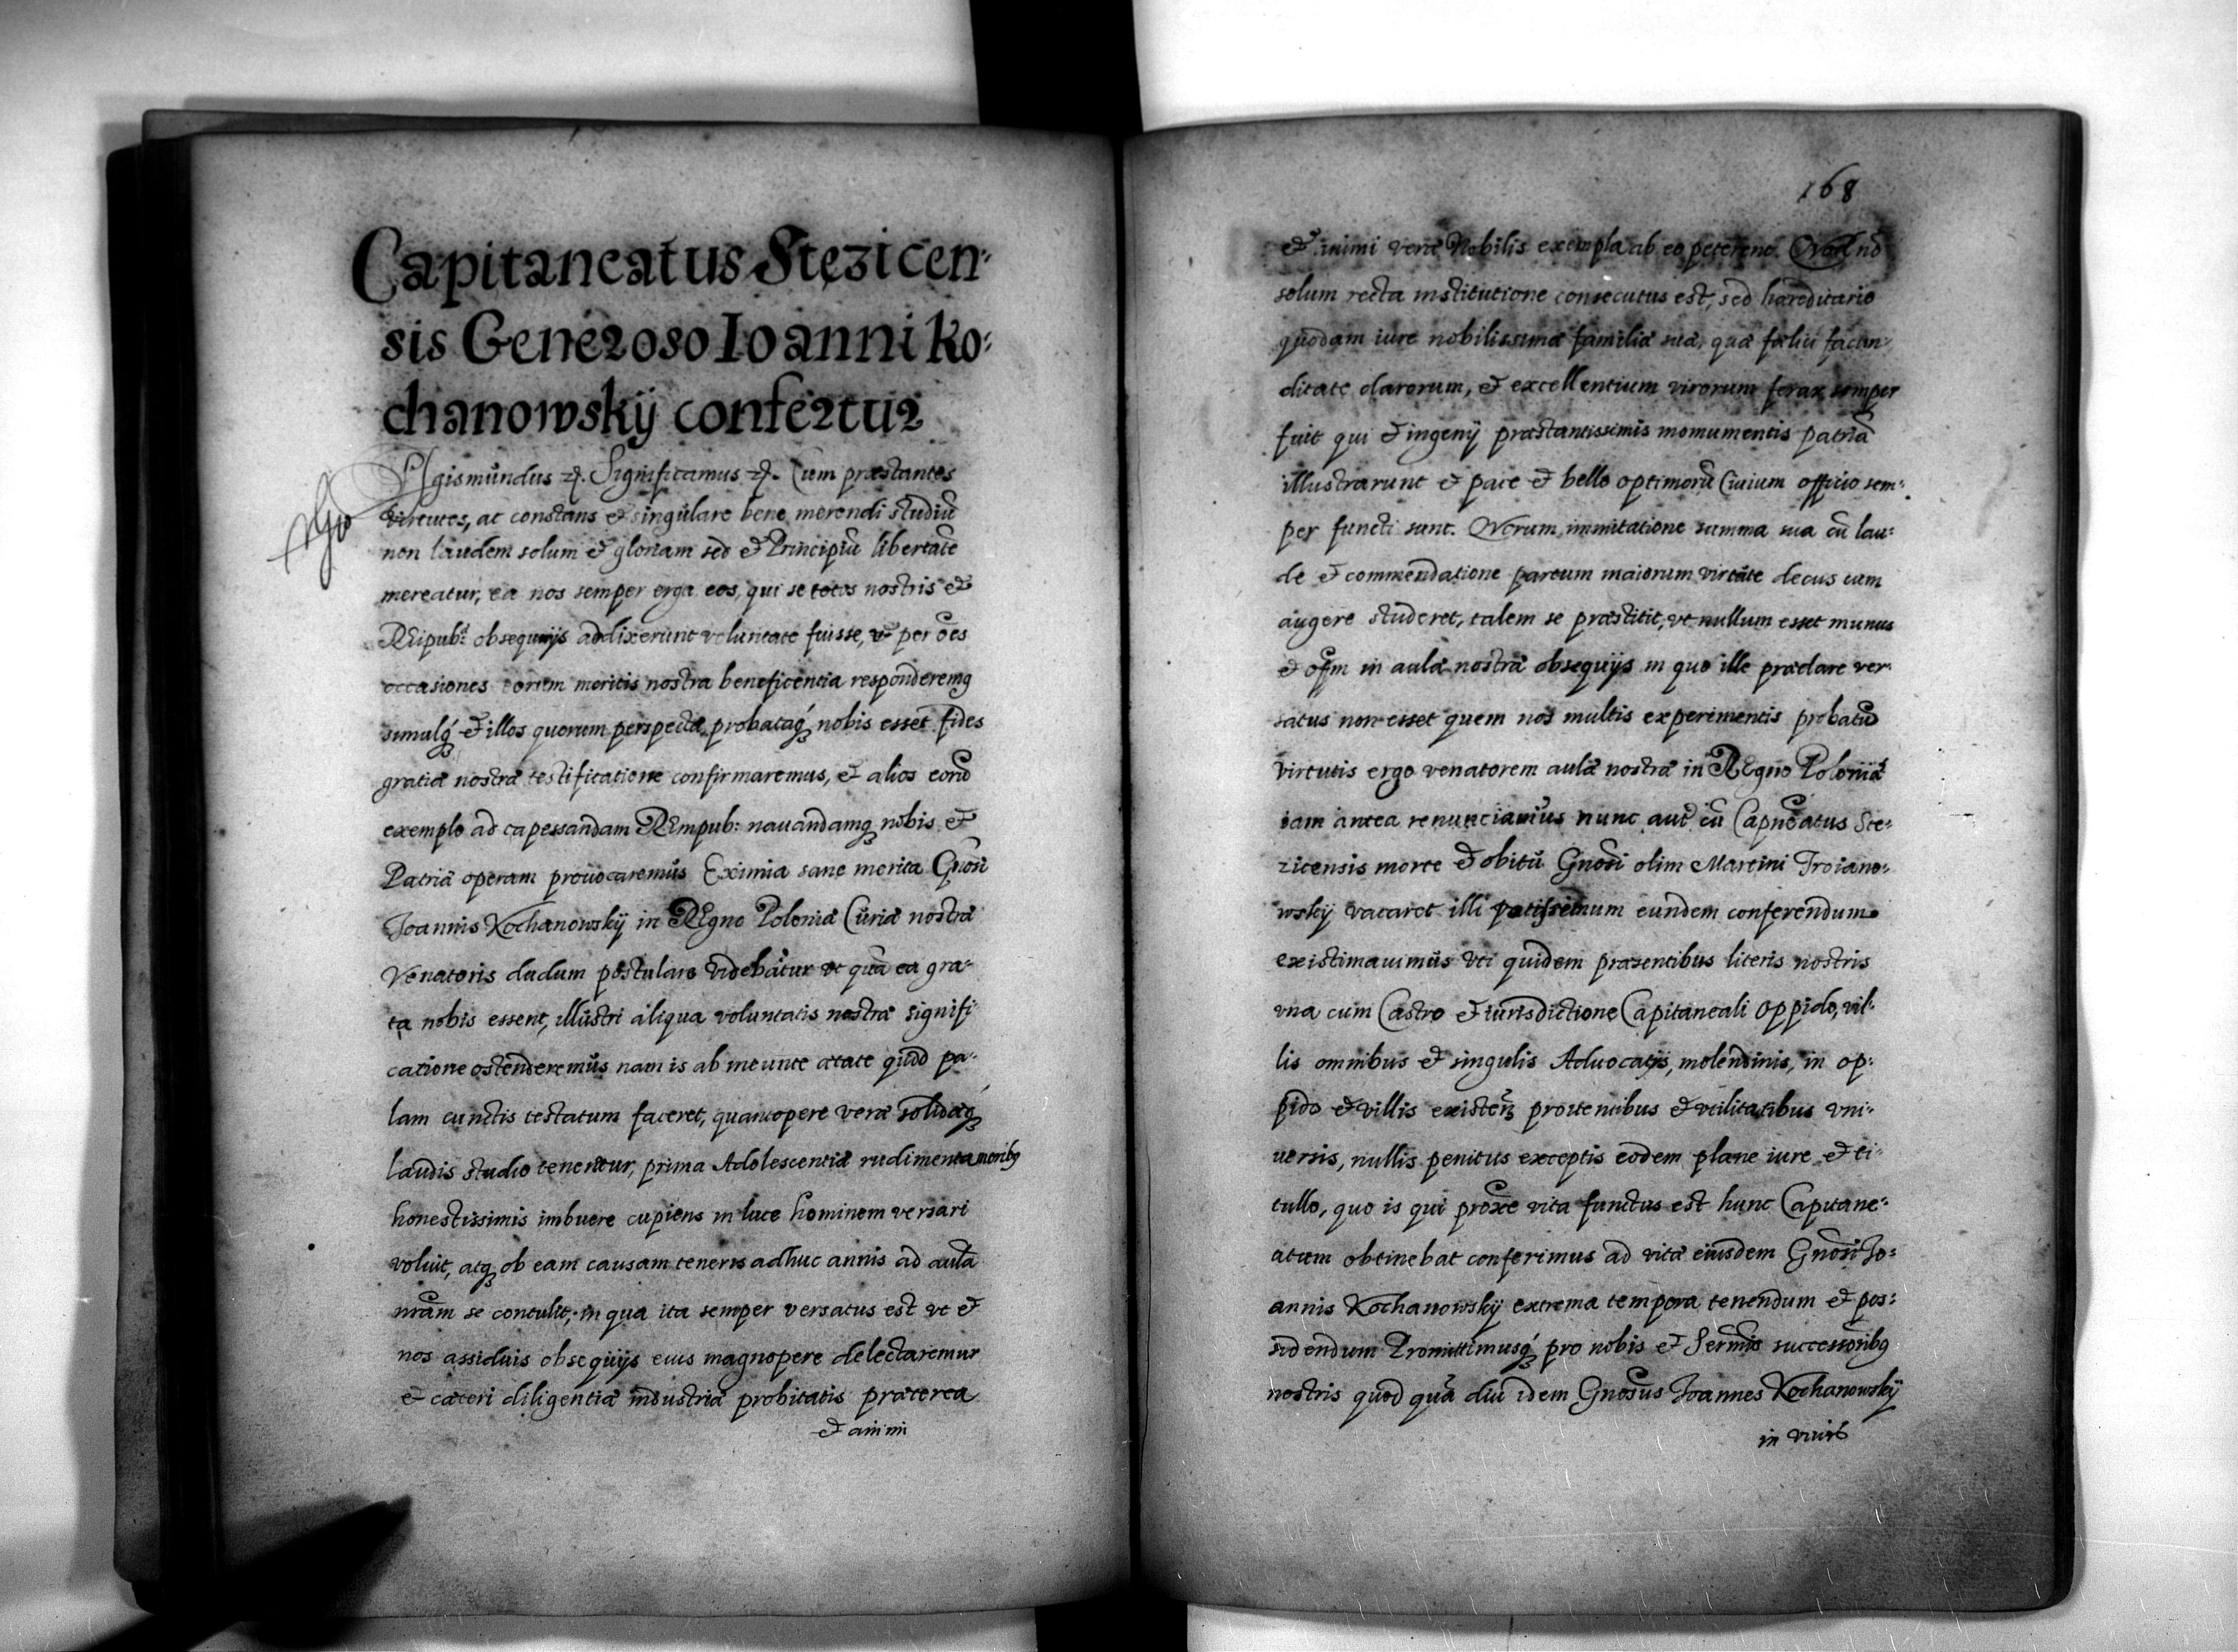 Capitaneatus Stęzicen-
sis Generoso Ioanni Ko-
chanowskÿ confertur
SIgismundus etc. Significamus etc. Cum præstantes
virtutes, ac constans et singulare bene merendi studiũ
non laudem solum et gloriam sed et Principiũ libertatẽ
mereatur, ea nos semper erga eos, qui se totos nostris et
REipub: obsequijs addixerunt voluntate fuisse, vt per ões
occasiones eorum meritis nostra beneficentia responderemq
simulq́ et illos quorum perspecta, probataq́ nobis esset fides
gratiæ nostræ testificatione confirmaremus, et alios eorũ
exemplo ad capessandam REmpub: nauandamq nobis et
Patriæ operam prouocaremus Eximia sane merita Gnõsi
Joannis Kochanowskÿ in REgno Poloniæ Curiæ nostræ
Venatoris dudum postulare videbatur vt quã ea gra-
ta nobis essent, illustri aliqua voluntatis nostræ signifi-
catione ostenderemus nam is ab ineunte ætate quõd pa-
lam cunctis testatum faceret, quantopere veræ solidæq́
laudis studio teneretur, prima Adolescentiæ rudimenta moribq
honestissimis imbuere cupiens in luce hominem versari
voluit, atq ob eam causam teneris adhuc annis ad aulã
nrãm se contulit, in qua ita semper versatus est vt et
nos assiduis obsequijs eius magnopere delectaremur
et cæteri diligentiæ industriæ probitatis præterea
et animi
168
et animi veræ Nobilis exempla ab eo peterent. QVod nõ
solum recta institutione consecutus est, sed hæreditario
quodam iure nobilissimæ familiæ suæ, quæ fælici fæcun-
ditate clarorum, et excellentium virorum ferax semper
fuit qui et ingenij præstantissimis momumentis patriã
illustrarunt et pace et bello optimorũ Ciuium officio sem-
per functi sunt. QVorum immitatione summa sua cũ lau-
de et commendatione partum maiorum virtute decus cum
augere studeret, talem se præstitit, vt nullum esset munus
et offm in aulæ nostræ obsequijs in quo ille præclare ver-
satus non esset quem nos multis experimentis probatũ
virtutis ergo venatorem aulæ nostræ in REgno Poloniæ
iam antea renunciauimus nunc aut cũ Capneatus Ste-
zicensis morte et obitũ Gnõsi olim Martini Troiano-
wskÿ vacaret illi potissimum eundem conferendum
existimauimus vti quidem præsentibus literis nostris
vna cum Castro et iurisdictione Capitaneali oppido, vil-
lis omnibus et singulis Aduocatijs, molendinis, in op-
pido et villis existen prouentibus et vtilitatibus vni-
uersis, nullis penitus exceptis eodem plane iure et ti-
tullo, quo is qui proxe vita functus est hunc Capitane-
atum obtinebat conferimus ad vitæ eiusdem Gnõsi Jo-
annis Kochanowskÿ extrema tempora tenendum et pos-
sidendum Promittimusq́ pro nobis et Sermis successoribq
nostris quod quã diu idem Gnosus Joannes Kochanowskÿ
in viuis